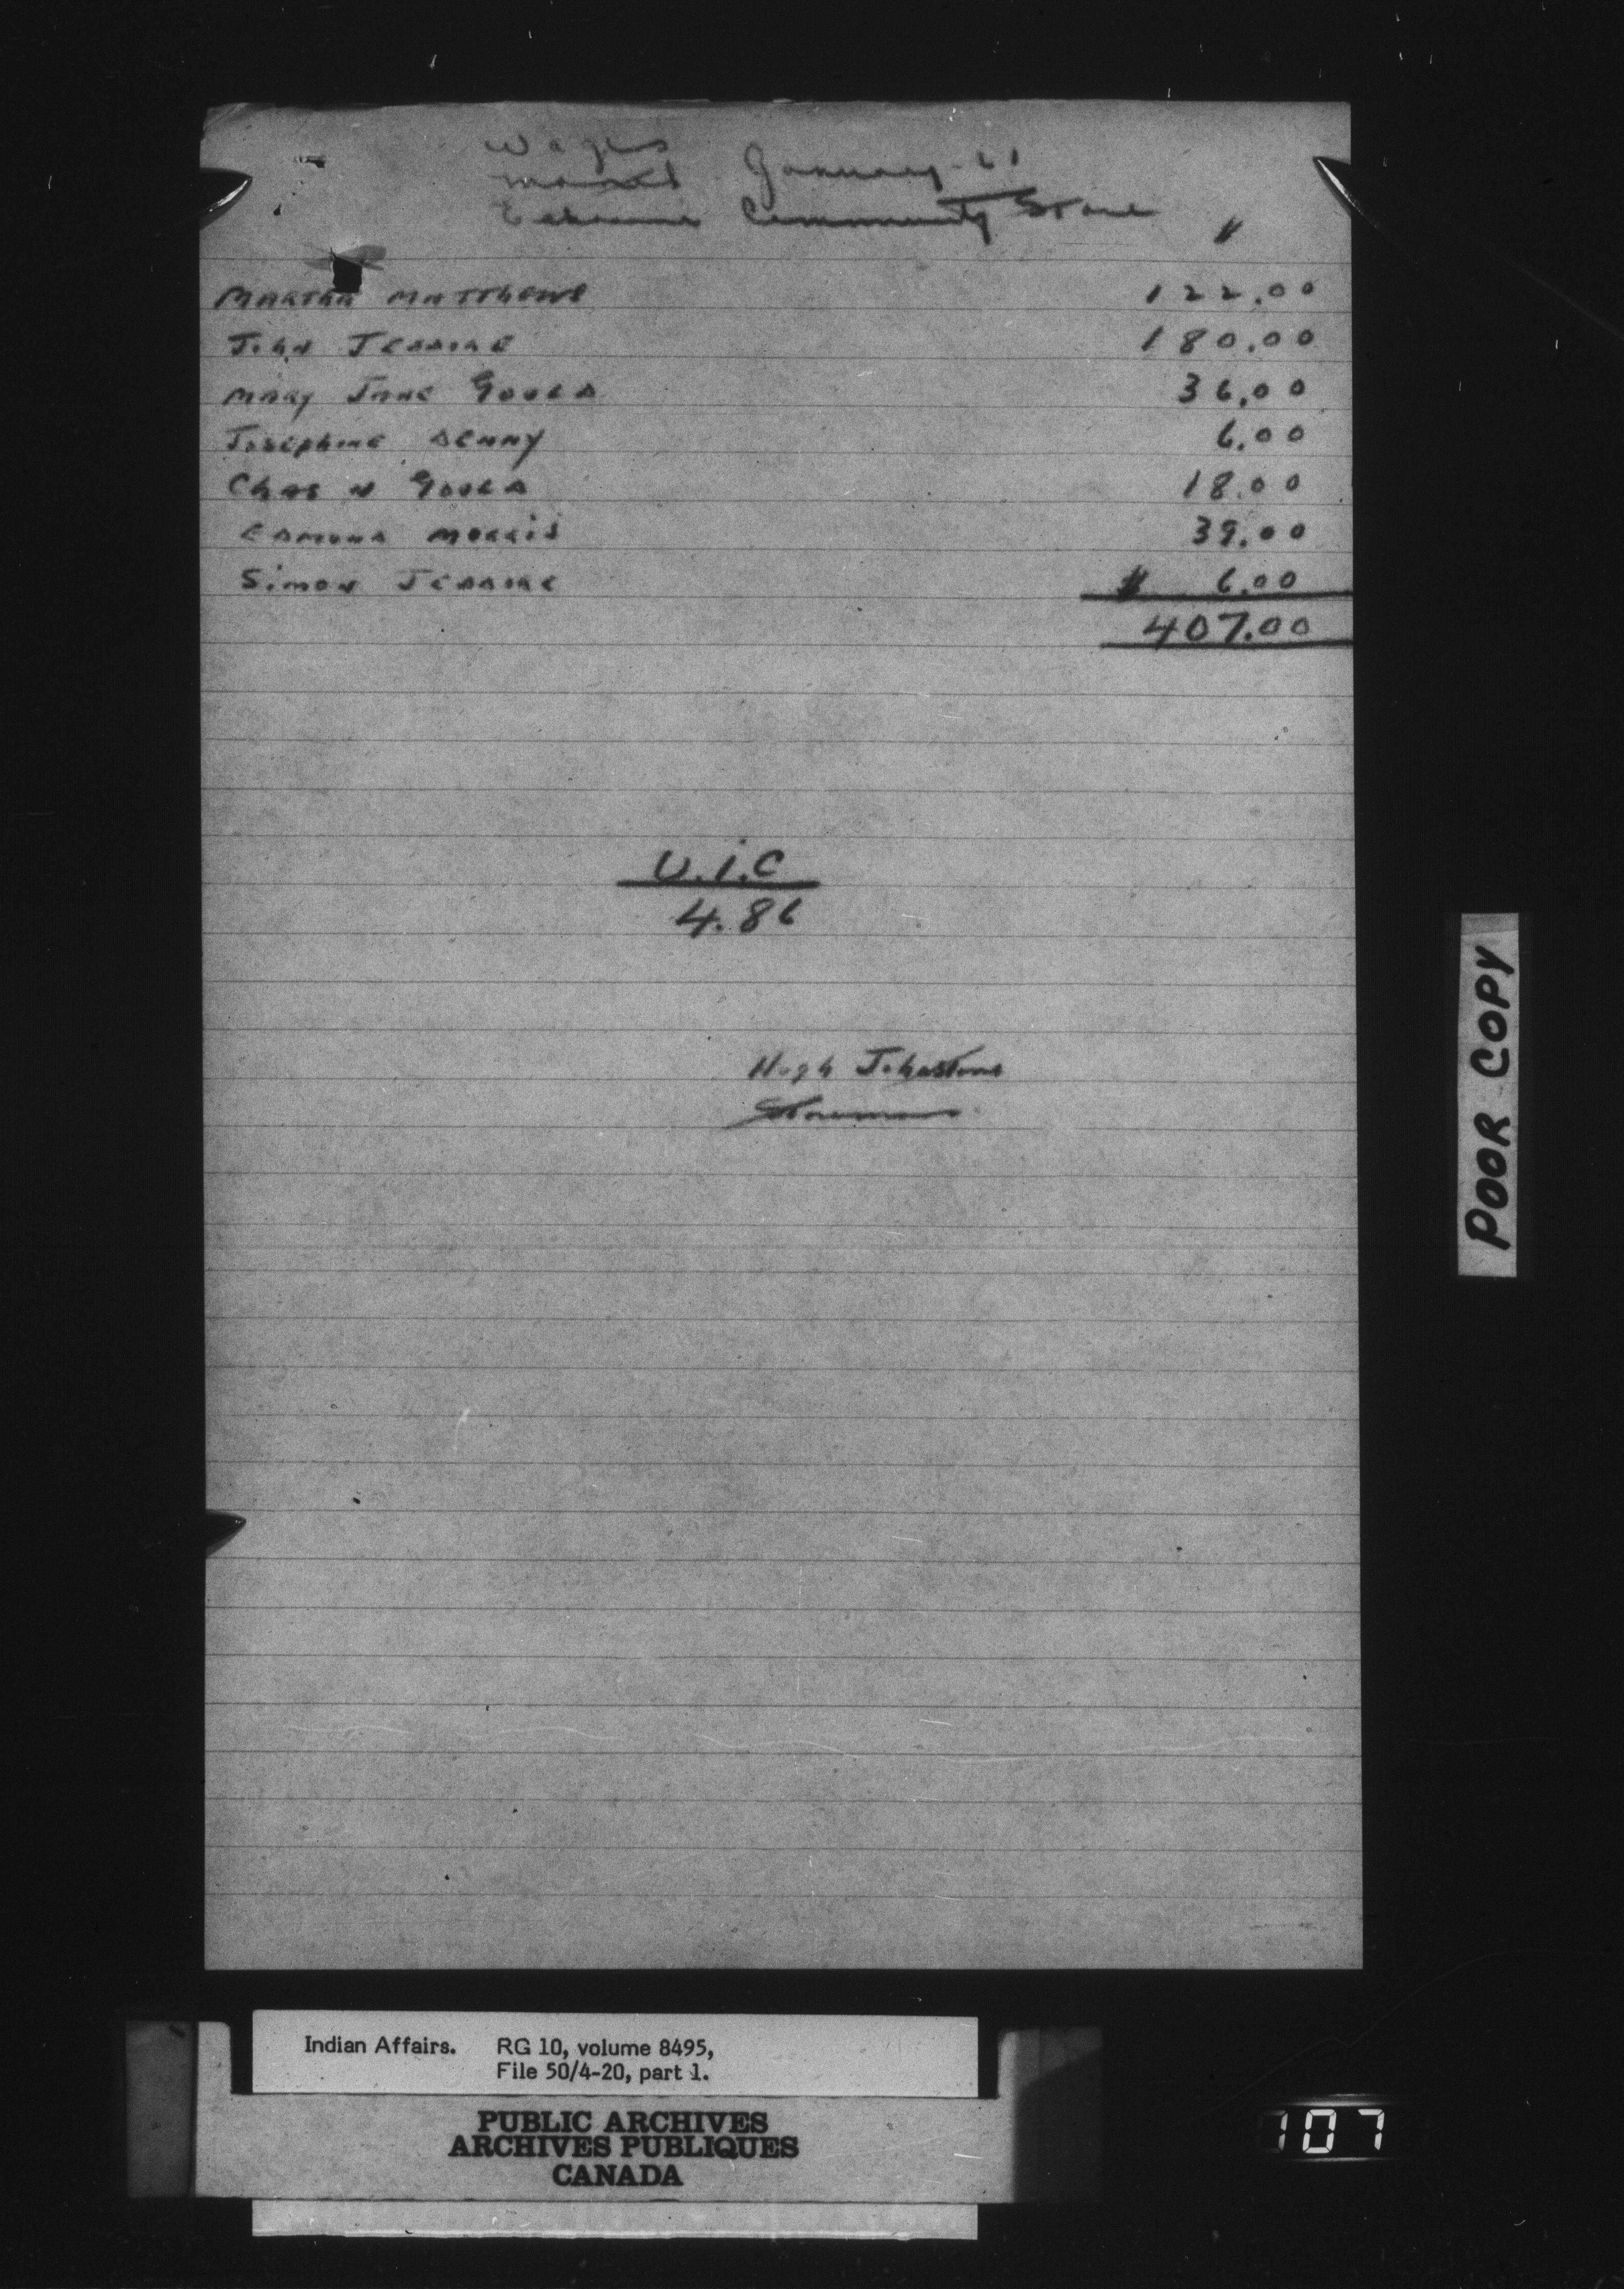 Wages
Month January-61
Eskasoni Community Store
$
MARTHA MATTHEWS 122.00
John JEDDORE 180.00
MARY JANE GOULD 36.00
Josephine DENNY 6.00
Chas N GOULD 18.00
EDMUND MORRIS 39.00
Simon JEDDORE $ 6.00
407.00
U.I.C
4.86
Hugh Johnstone
Storeman
POOR COPY
Indian Affairs. RG 10, volume 8495,
File 50/4-20, part 1.
PUBLIC ARCHIVES
ARCHIVES PUBLIQUES
CANADA
707